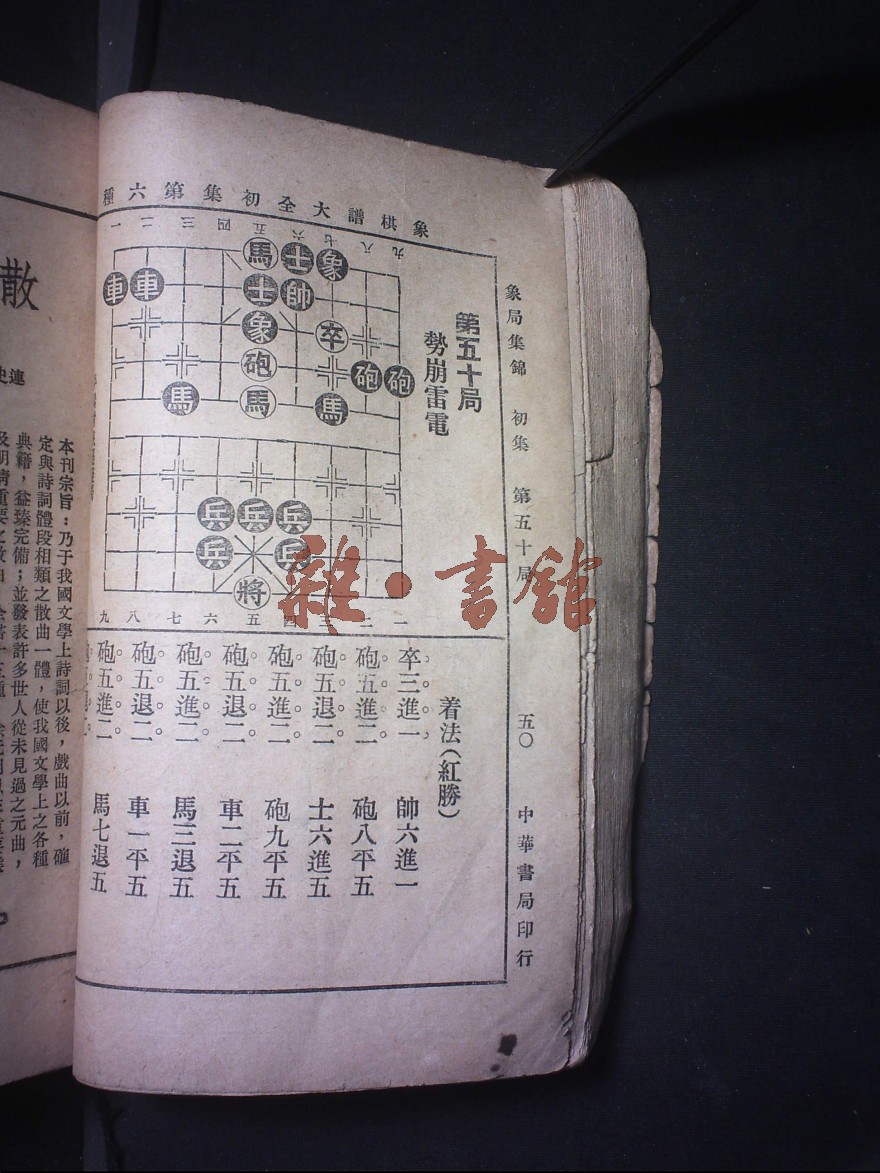 象棋譜大全初集第六種
象局集錦 初集 第五十局 五〇 中華書局印行
第五十局
勢崩雷電
一 二 三 四 五 六 七 八 九
馬 士 象
車 車 士 帥
象 卒
砲 砲 砲
馬 馬 馬
兵 兵 兵
兵 兵
將
九 八 七 六 五 四 二 一
雜·書館
着法(紅勝)
卒三進一 帥六進一
砲五進二 砲八平五
砲五退二 士六進五
砲五進二 砲九平五
砲五退二 車二平五
砲五進二 馬三退五
砲五退二 車一平五
砲五進二 馬七退五
散
本刊宗旨:乃于我國文學上詩詞以後,戲曲以前,確
定與詩詞體段相類之散曲一體,使我國文學上之各種
典籍,益臻完備;並發表許多世人從未見過之元曲,